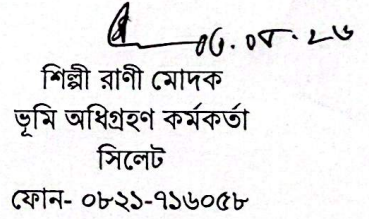 ০৬.০৪.২৬
শিল্পী রাণী মোদক
ভূমি অধিগ্রহণ কর্মকর্তা
সিলেট
ফোন- ০৮২১-৭১৬০৫৮